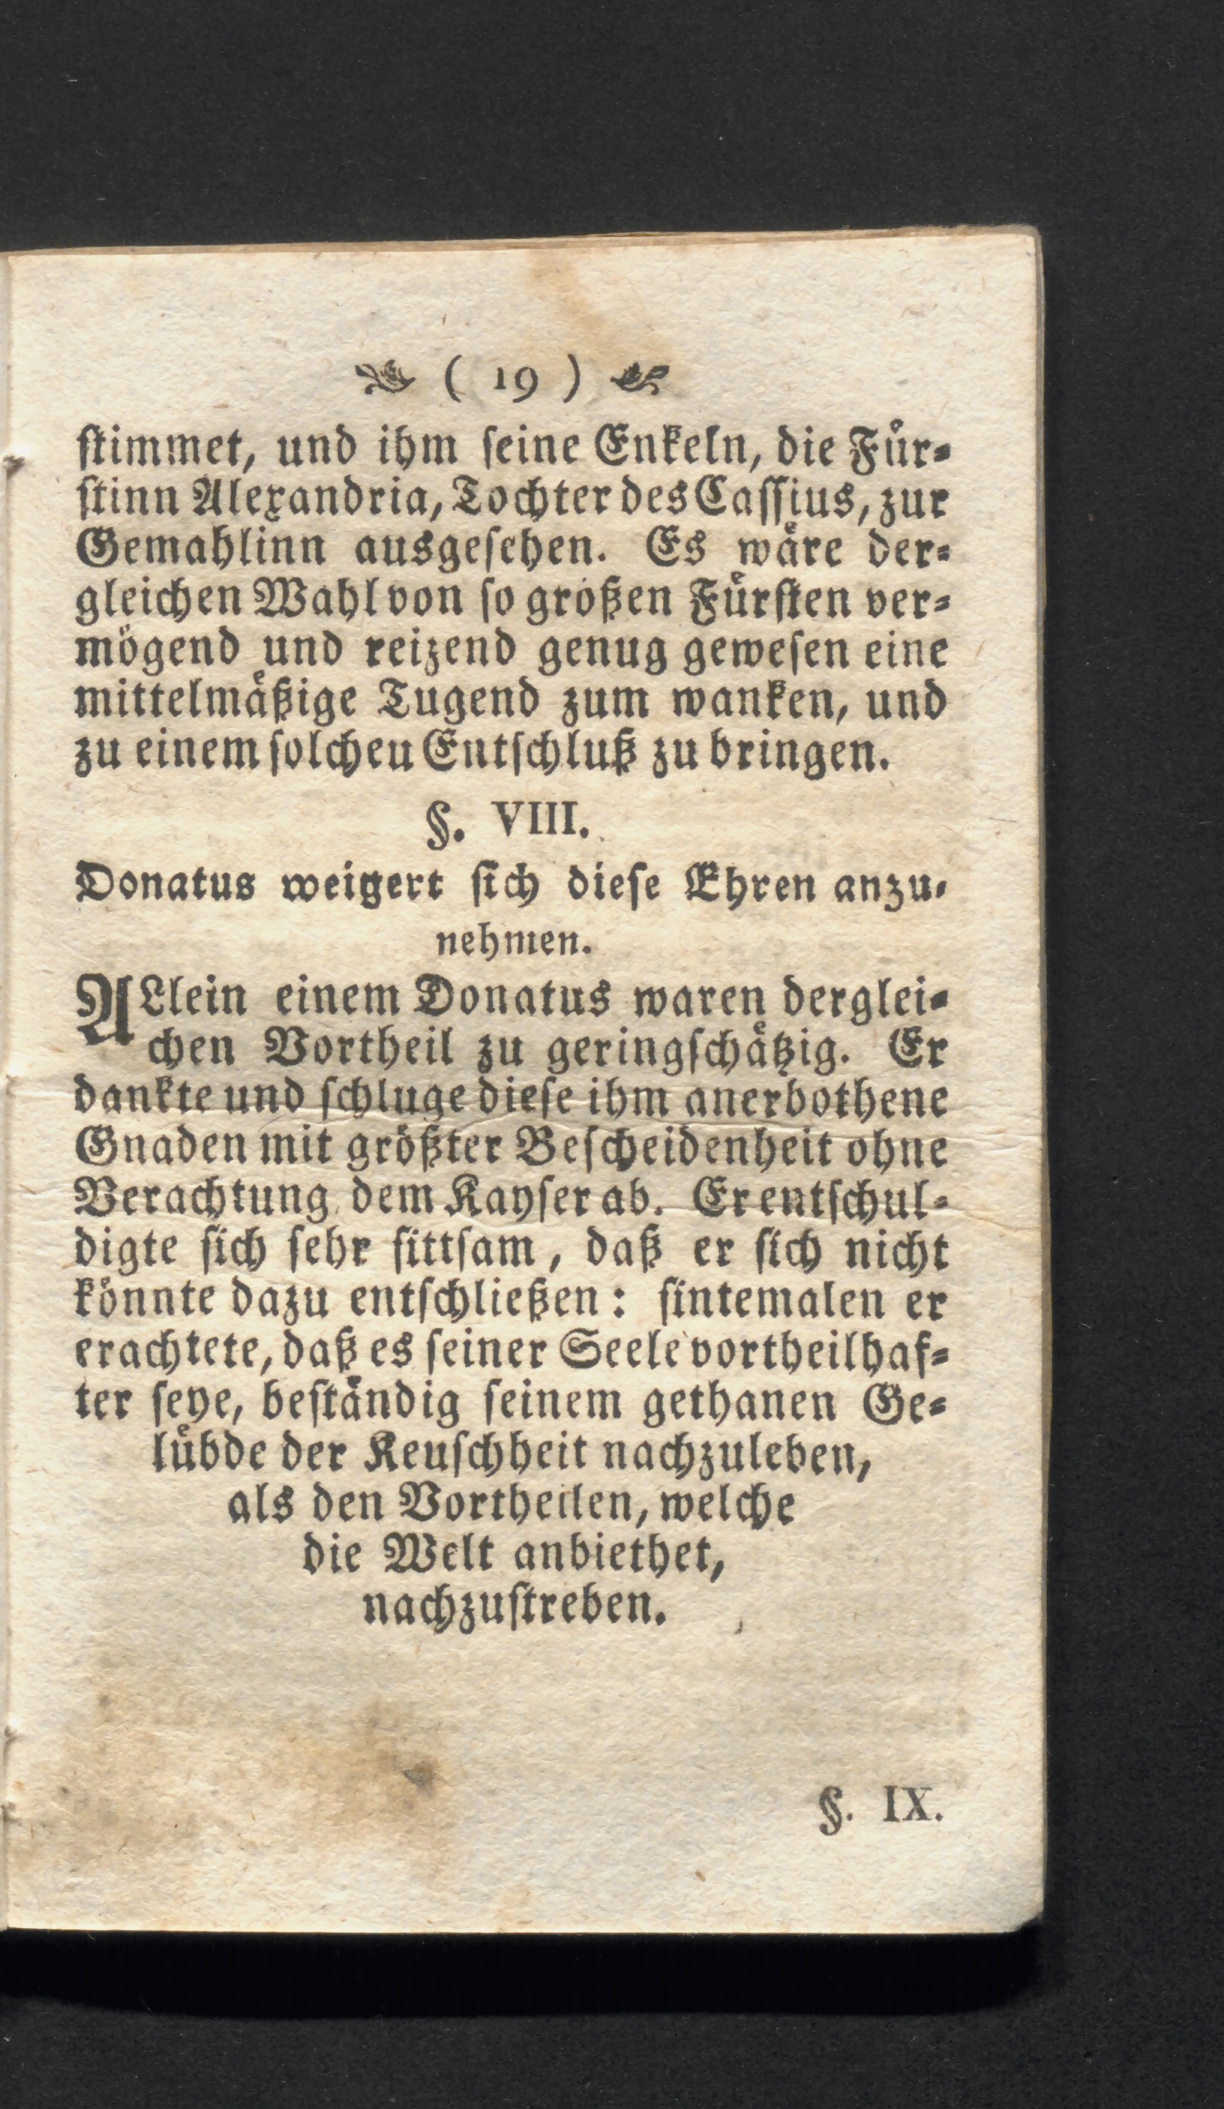 ( 19 )
stimmet, und ihm seine Enkeln, die Für-
stinn Alexandria, Tochter des Cassius, zur
Gemahlinn ausgesehen. Es wäre der-
gleichen Wahl von so großen Fürsten ver-
mögend und reizend genug gewesen eine
mittelmäßige Tugend zum wanken, und
zu einem solcheu Entschluß zu bringen.
§. VIII.
Donatus weigert sich diese Ehren anzu-
nehmen.
ALlein einem Donatus waren derglei-
chen Vortheil zu geringschätzig. Er
dankte und schluge diese ihm anerbothene
Gnaden mit größter Bescheidenheit ohne
Verachtung dem Kayser ab. Er entschul-
digte sich sehr sittsam, daß er sich nicht
könnte dazu entschließen: sintemalen er
erachtete, daß es seiner Seele vortheilhaf-
ter seye, beständig seinem gethanen Ge-
lübde der Keuschheit nachzuleben,
als den Vortheilen, welche
die Welt anbiethet,
nachzustreben.
§. IX.